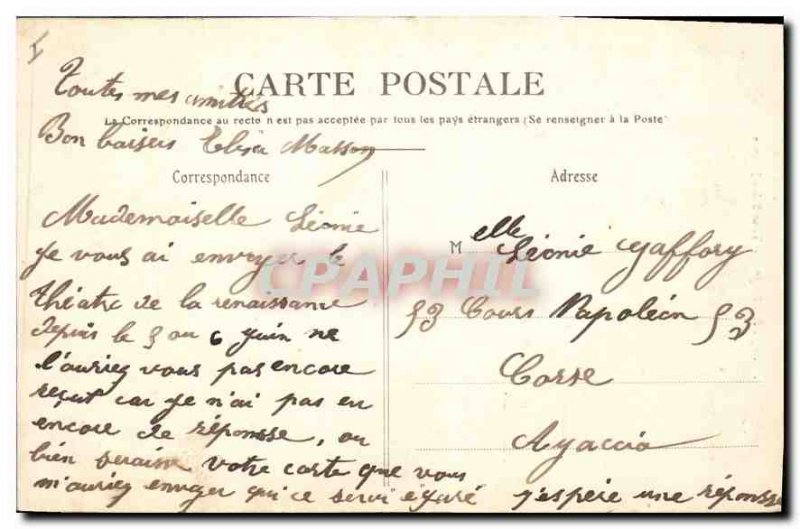 CARTE POSTALE
La Correspondance au recto n'est pas acceptée par tous les pays étrangers (Se renseigner à la Poste)
Toutes mes amitiés
Bon baisers Elisa Masson
Correspondance
Mademoiselle Léonie
Je vous ai envoyer le
théâtre de la renaissance
depuis le 5 ou 6 Juin ne
l'auriez vous pas encore
reçut car je n'ai pas eu
encore de réponsse, ou
bien seraisse votre carte que vous
m'auriez envoyer qui ce servi égaré j'espère une réponsse
Adresse
Melle Léonie Gaffory
53 Cours Napoléon 53
Corse
Ayaccio
CPAPHIL